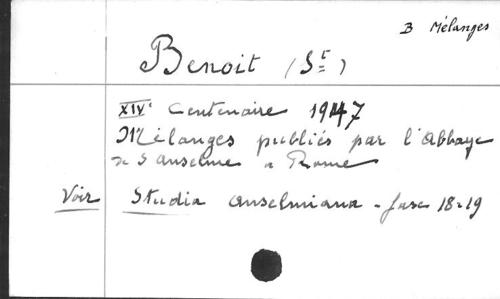 B Mélanges
Benoit (St)
XIVe Centenaire 1947
Mélanges publiés par l'Abbaye
de S Anselme a Rome
Voir Studia anselmiana - fasc 18-19